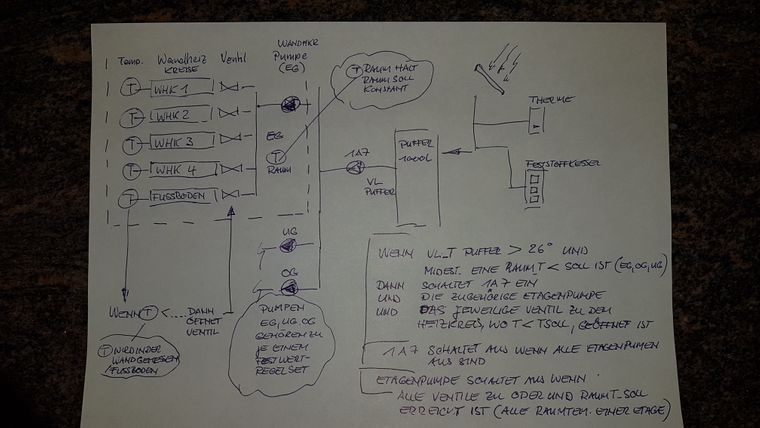 Temp. Wandheiz KREISE Ventil
WANDHKR Pumpe (EG)
T WHK 1
T WHK 2
T WHK 3
T WHK 4
T FUSSBODEN
EG
T RAUM
T RAUM HÄLT
RAUM SOLL
KONSTANT
1A7
VL
PUFFER
PUFFER
1000L
THERME
FESTSTOFFKESSEL
UG
OG
WENN T DANN
ÖFFNET
VENTIL
T WIRD IN DER
WAND GEMESSEN
/FUSSBODEN
PUMPEN
EG, UG, OG
GEHÖREN ZU
JE EINEM
FESTWERT-
REGELSET
WENN VL_T PUFFER > 26° UND
MIDEST. EINE RAUMT < SOLL IST (EG,OG,UG)
DANN SCHALTET 1A7 EIN
UND DIE ZUGEHÖRIGE ETAGENPUMPE
UND DAS JEWEILIGE VENTIL ZU DEM
HEIZKREIS, WO T < TSOLL, GEÖFFNET IST
1A7 SCHALTET AUS WENN ALLE ETAGENPUMPEN
AUS SIND
ETAGENPUMPE SCHALTET AUS WENN
ALLE VENTILE ZU ODER UND RAUMT_SOLL
ERREICHT IST (ALLE RAUMTEM. EINER ETAGE)